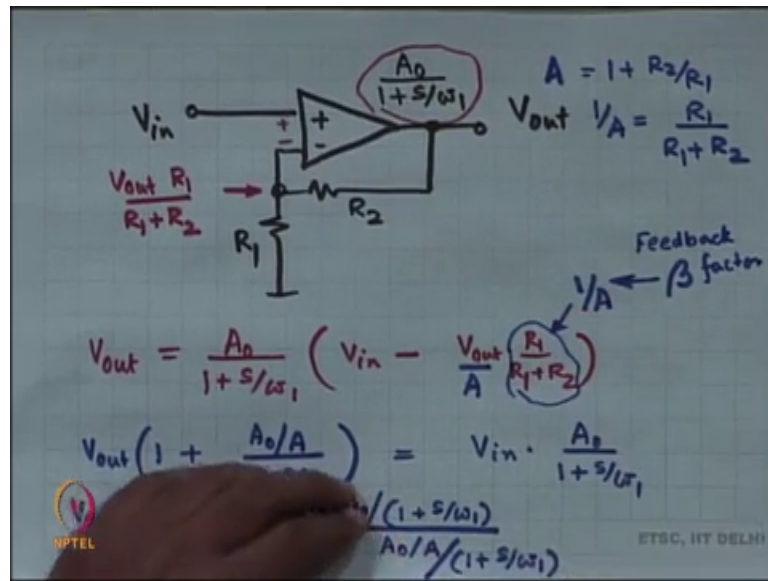 A₀
1 + s/ω₁
A = 1 + R₂/R₁
Vin
+
-
+
-
Vout
1/A = R₁
R₁ + R₂
Vout R₁
R₁ + R₂
R₂
R₁
Feedback
β factor
1/A
Vout = A₀/(1 + s/ω₁) ( Vin - Vout/A R₁/(R₁ + R₂) )
Vout ( 1 + A₀/A ) = Vin · A₀/(1 + s/ω₁)
V
/(1 + s/ω₁)
A₀/A/(1 + s/ω₁)
NPTEL
ETSC, IIT DELHI